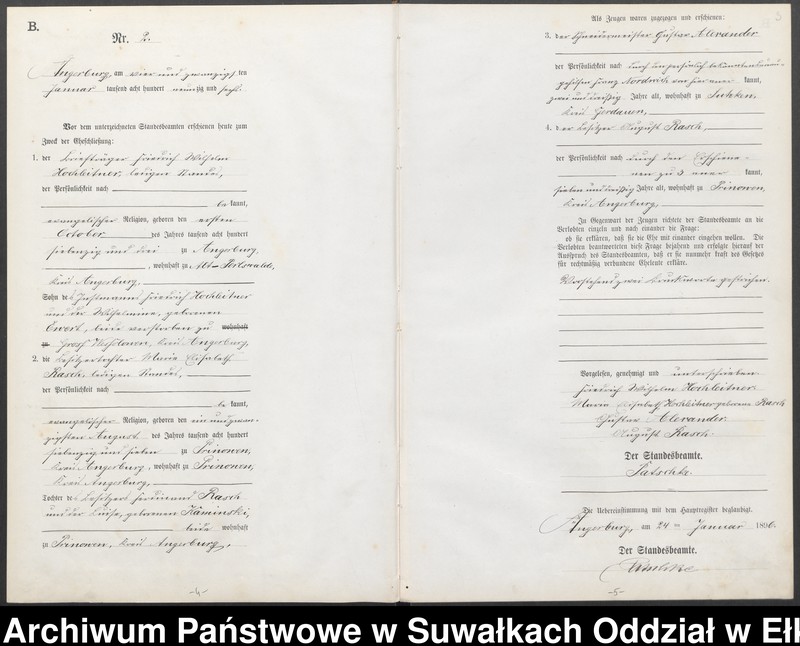 B.
Nr. 2.
Angerburg, am vier und zwanzigsten
Januar tausend acht hundert neunzig und sechs.
Vor dem unterzeichneten Standesbeamten erschienen heute zum
Zweck der Eheschließung:
1. der Briefträger Friedrich Wilhelm
Hochleitner, ledigen Standes,
der Persönlichkeit nach
be kannt,
evangelischer Religion, geboren den ersten
October des Jahres tausend acht hundert
siebenzig und drei zu Angerburg,
, wohnhaft zu Alt-Perlswalde,
Kreis Angerburg,
Sohn des Instmanns Friedrich Hochleitner
und der Wilhelmine, geborenen
Ewert, beide verstorben zu wohnhaft
zu Gross Wessolowen, Kreis Angerburg,
2. die Besitzertochter Maria Elisabeth
Rasch, ledigen Standes,
der Persönlichkeit nach
be kannt,
evangelischer Religion, geboren den ein und zwan-
zigsten August des Jahres tausend acht hundert
siebenzig und sieben zu Prinowen,
Kreis Angerburg, wohnhaft zu Prinowen,
Kreis Angerburg,
Tochter des Besitzers Ferdinand Rasch
und der Luise, geborenen Kaminski,
beide wohnhaft
zu Prinowen, Kreis Angerburg.
-4-
Als Zeugen waren zugezogen und erschienen:
3. der Schneidermeister Gustav Alexander
der Persönlichkeit nach durch den persönlich bekannten
Franz aner kannt,
zwei und dreißig Jahre alt, wohnhaft zu
Kreis Gerdauen,
4. der Besitzer August Rasch,
der Persönlichkeit nach durch den Erschiene-
nen zu 3 aner kannt,
sieben und dreißig Jahre alt, wohnhaft zu Prinowen,
Kreis Angerburg,
In Gegenwart der Zeugen richtete der Standesbeamte an die
Verlobten einzeln und nach einander die Frage:
ob sie erklären, daß sie die Ehe mit einander eingehen wollen. Die
Verlobten beantworteten diese Frage bejahend und erfolgte hierauf der
Ausspruch des Standesbeamten, daß er sie nunmehr kraft des Gesetzes
für rechtmäßig verbundene Eheleute erkläre.
Vorstehend zwei Druckworte gestrichen.
Vorgelesen, genehmigt und unterschrieben
Friedrich Wilhelm Hochleitner
Maria Elisabeth Hochleitner geborene Rasch
Gustav Alexander
August Rasch.
Der Standesbeamte.
Die Uebereinstimmung mit dem Hauptregister beglaubigt.
Angerburg, am 24ten Januar 1896.
Der Standesbeamte.
-5-
Archiwum Państwowe w Suwałkach Oddział w Ełk